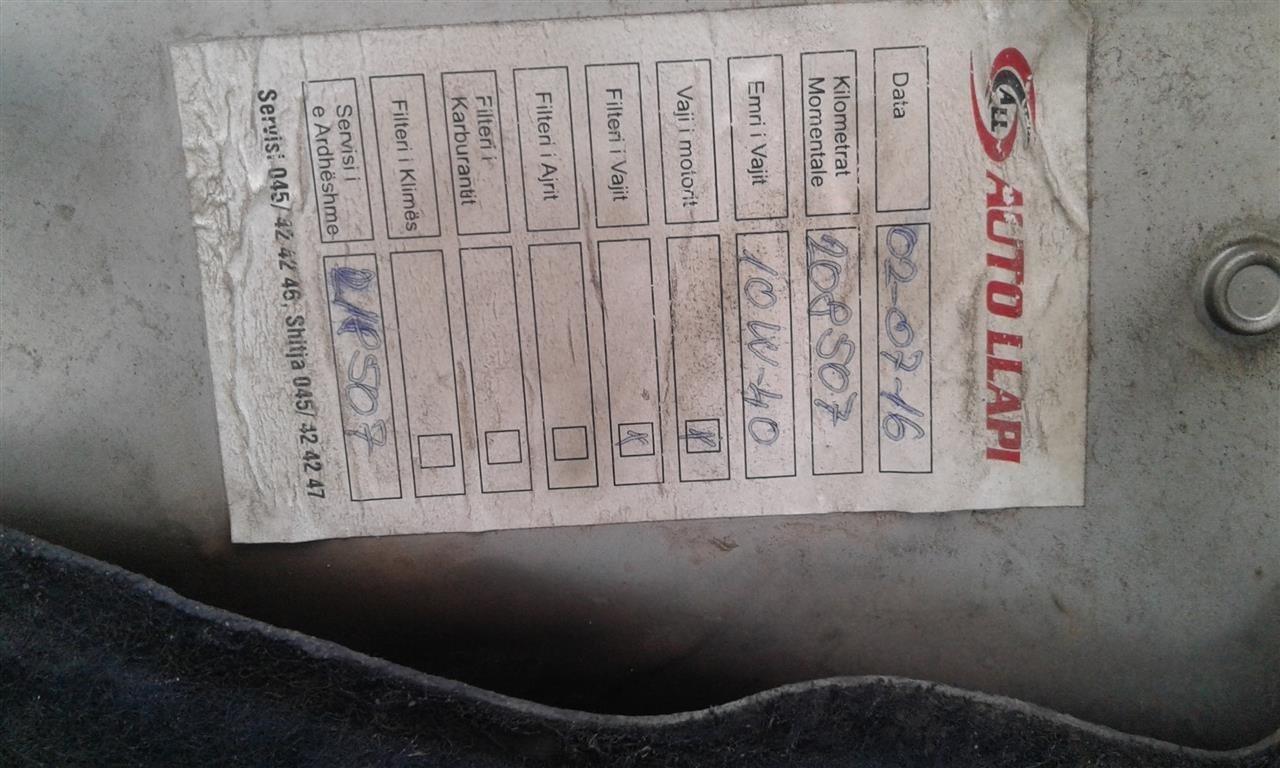 ALL
AUTO LLAPI
Data 02-07-16
Kilometrat Momentale 208507
Emri i Vajit 10W-40
Vaji i motorit x
Filteri i Vajit x
Filteri i Ajrit
Filteri i Karburantit
Filteri i Klimës
Servisi i e Ardhëshme
Servisi 045/ 42 42 46, Shitja 045/ 42 42 47